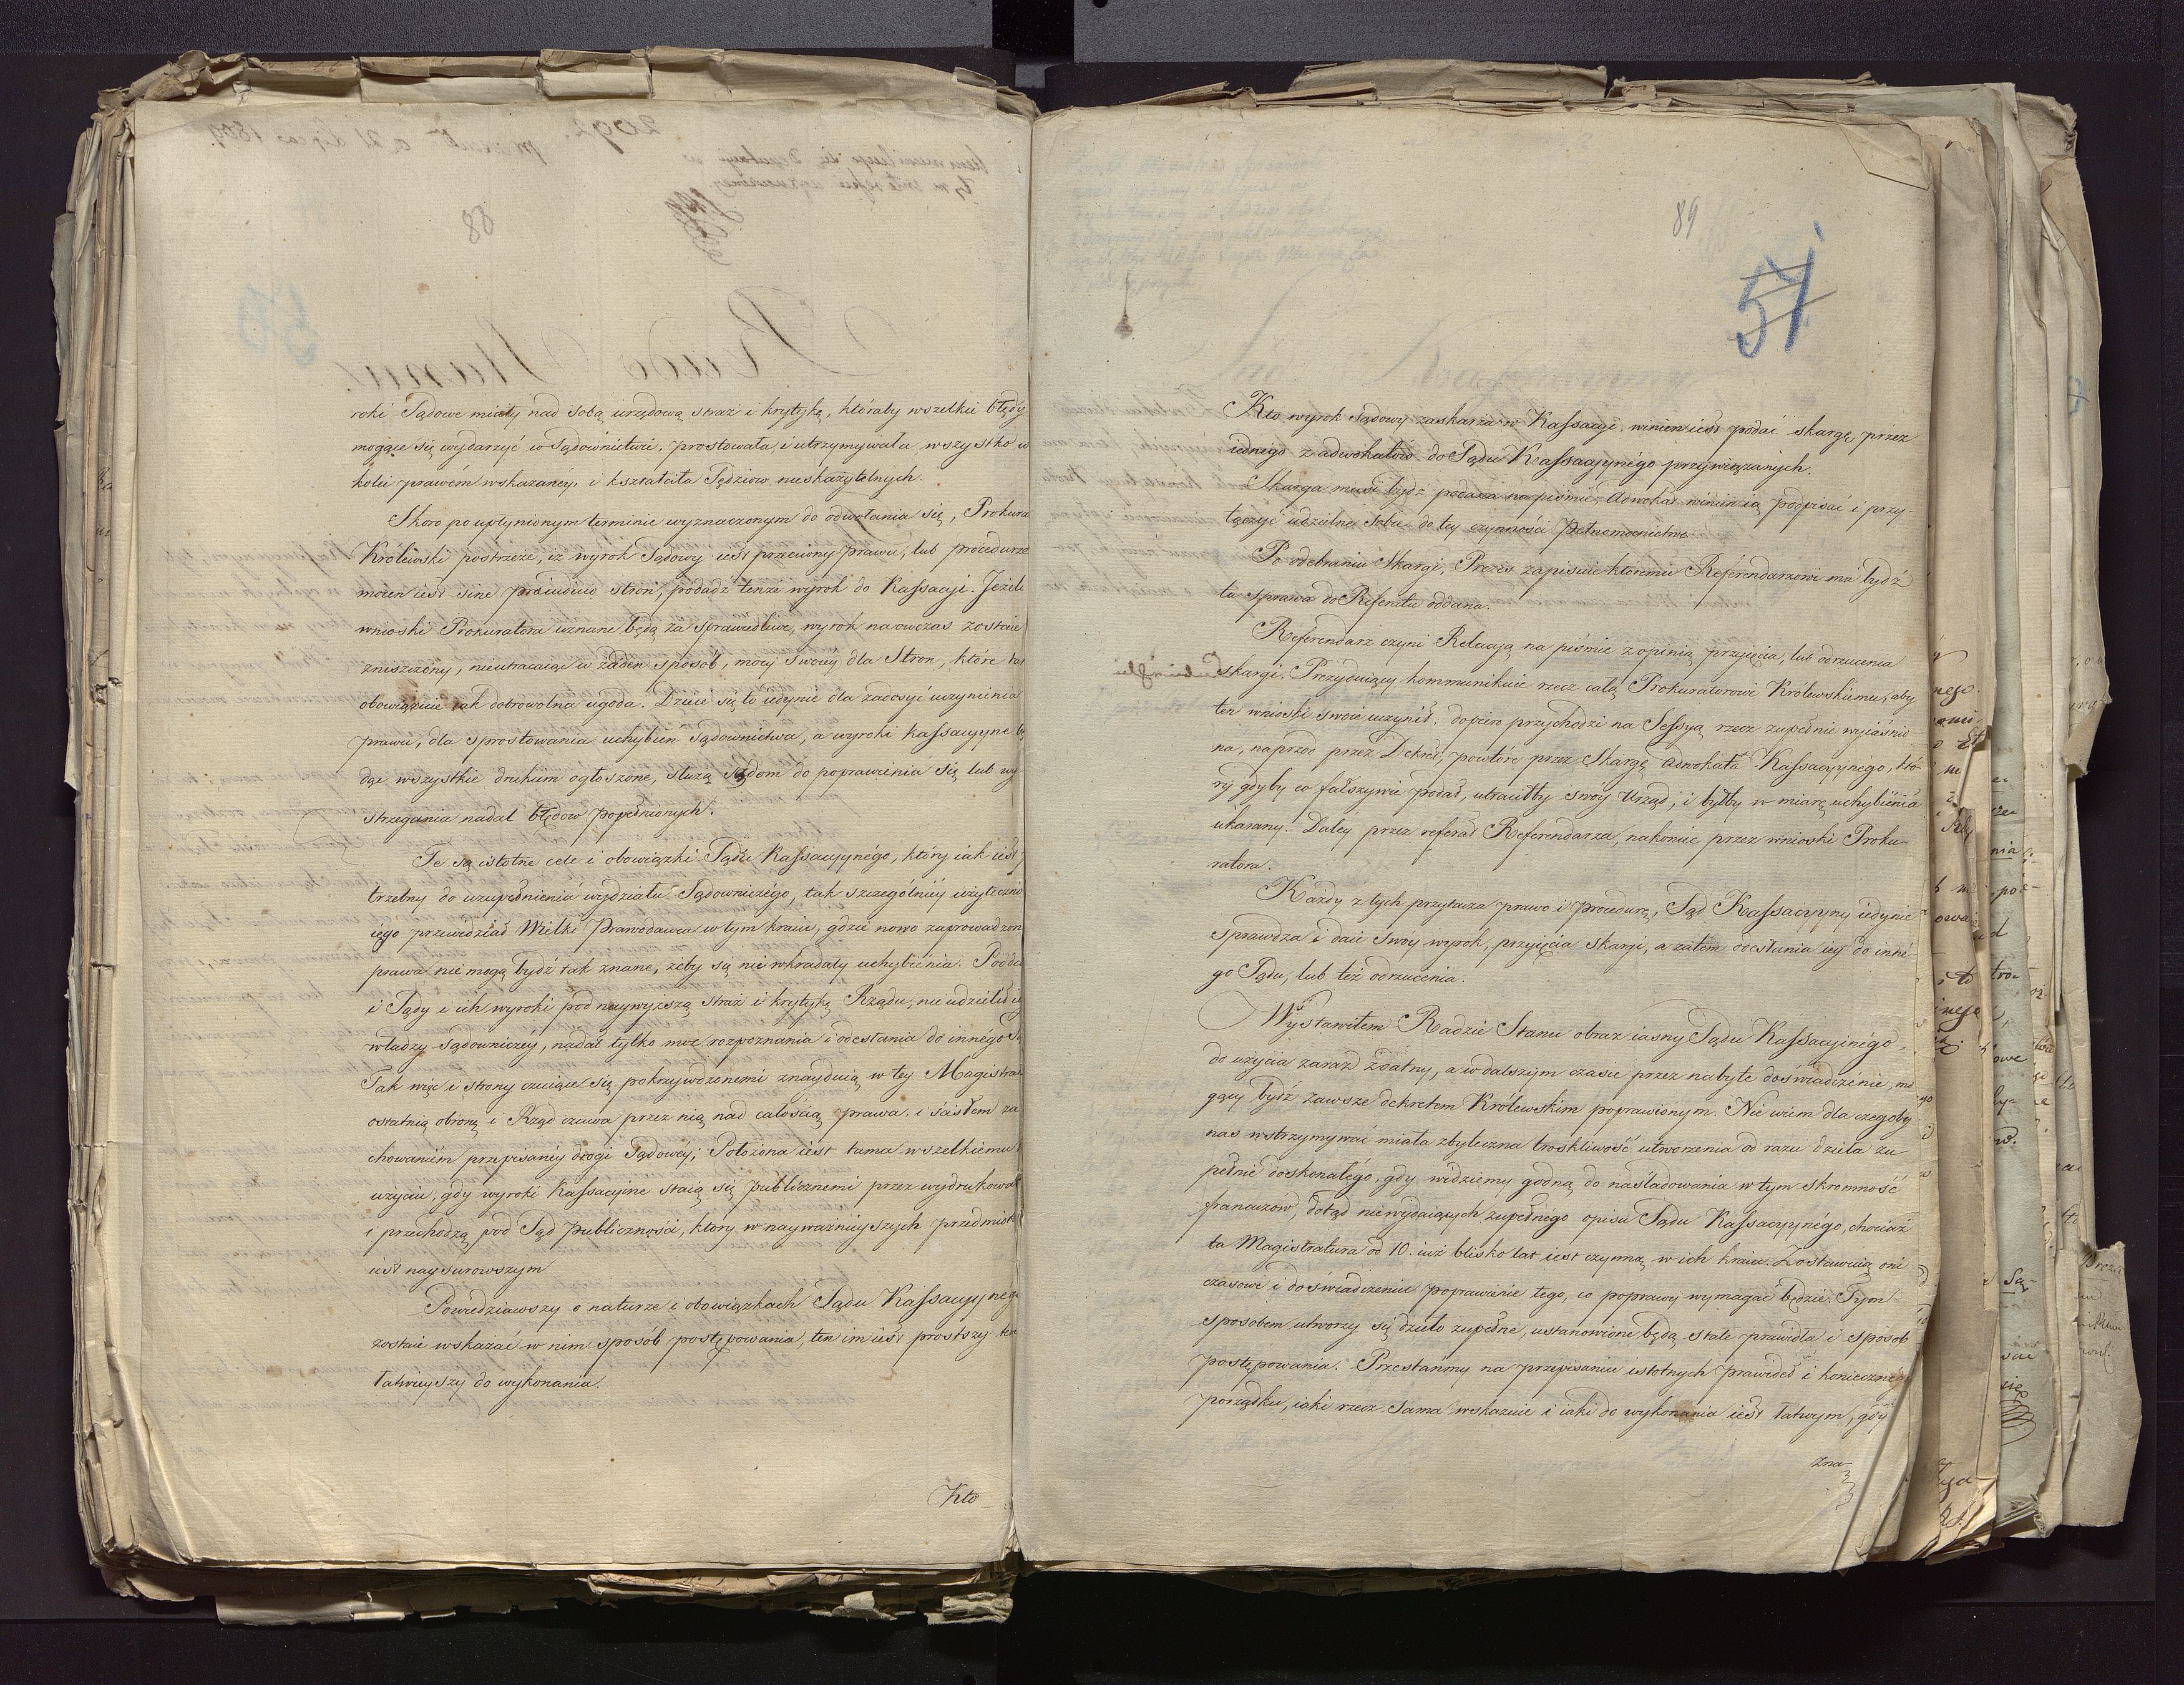 roki Sądowe miały nad sobą urzędową straż i krytykę, któraby wszelkie błędy
mogące się wydarzyć w Sądownictwie, prostowała i utrzymywała wszystko w
kolei prawém wskazanéy, i kształciła Sędziow nieskazytelnych.
Skoro po upłynionym terminie wyznaczonym do odwołania się, Prokura
Królewski postrzeże, iż wyrok Sądowy iest przeciwny prawu, lub procedurze
mocen iest sine praeiudicio stron, podadź tenże wyrok do Kassacyi. Jeżeli
wnioski Prokuratora uznane będą za sprawiedliwe, wyrok naowczas zostaie
zniszczony, nieutracaiąc w żaden sposób, mocy swoiéy dla Stron, które tak
obowiązuie iak dobrowolna ugoda. Dzieie się to iedynie dla zadosyć uczynienia
prawu, dla sprostowania uchybień Sądownictwa, a wyroki kassacyyne bę
dąc wszystkie drukiem ogłoszone, służą Sądom do poprawienia się lub wy
strzegania nadal błędow popełnionych.
Te są istotne cele i obowiązki Sądu Kassacyynégo, który iak iest
trzebny do uzupełnienia wydziału Sądowniczégo, tak szczególniéy użyteczno
iego przewidział Wielki Prawodawca w tym kraiu, gdzie nowo zaprowadzon
prawa nie mogą bydź tak znane, żeby się nie wkradały uchybienia. Poddał
i Sądy i ich wyroki pod naywyższą straż i krytykę Rządu, nie udzielił ié
władzy Sądowniczéy, nadał tylko moc rozpoznania i odesłania do innégo Są
Tak więc i strony czuiące się pokrzywdzonemi znayduią w tey Magistra
ostatnią obronę i Rząd czuwa przez nią nad całością prawa, i ścisłem za
chowaniém przepisanéy drogi Sądowéy; Położona iest tama wszelkiemu
użyciu, gdy wyroki Kassacyine staią się publicznemi przez wydrukowa
i przechodzą pod Sąd publiczności, który w nayważnieyszych przedmiot
iest naysurowszym
Powiedziawszy o naturze i obowiązkach Sądu Kassacyynégo
zostaie wskazać w nim sposób postępowania, ten im iest prostszy tem
łatwieyszy do wykonania.
Kto
89
51
Kto wyrok sądowy zaskarża w Kassacyi winien iest podać skargę przez
iednego z adwokatów do Sądu Kassacyynégo przywiązanych.
Skarga musi bydź podana na piśmie, Adwokat winien ią podpisać i przy-
łączyć udzielne sobie do tey czynności Pełnomocnictwo.
Po odebraniu Skargi, Prezes zapisuie któremu Referendarzowi ma bydź
ta sprawa do Referatu oddana.
Referendarz czyni Relacyą na piśmie z opinią przyięcia, lub odrzucenia
skargi. Prezyduiący kommunikuie rzecz całą Prokuratorowi Królewskiemu, aby
ten wnioski swoie uczynił; dopiero przychodzi na Sessyą rzecz zupełnie wyiaśnio
na, naprzod przez Dekret, powtóre przez Skargę Adwokata Kassacyynego, któ-
ry gdyby co fałszywie podał, utraciłby swóy Urząd, i byłby w miarę uchybienia
ukarany. Daléy przez referat Referendarza, nakoniec przez wnioski Proku-
ratora.
Każdy z tych przytacza prawo i procedurę, Sąd Kassacyyny iedynie
sprawdza i daie swóy wyrok, przyięcia skargi, a zatém odesłania iéy do inné
go Sądu, lub też odrzucenia.
Wystawiłem Radzie Stanu obraz iasny Sądu Kassacyinégo,
do użycia zaraz zdatny, a w dalszym czasie przez nabyte doświadczenie, mo
gący bydź zawsze dekretem Królewskim poprawionym. Nie wiem dla czegoby
nas wstrzymywać miała zbyteczna troskliwość utworzenia od razu dzieła zu
pełnie doskonałégo, gdy widziemy godną do naśladowania w tym skromność
francuzów, dotąd niewydaiących zupełnego opisu Sądu Kassacyynégo, chociaż
ta Magistratura od 10. iuż blisko lat iest czynną w ich kraiu. Zostawuią oni
czasowi i doświadczeniu poprawienie tego, co poprawy wymagać będzie. Tym
sposobem utworzy się dzieło zupełne, ustanowione będą stałe prawidła i sposób
postępowania. Przestańmy na przepisaniu istotnych prawideł i koniecznégo
porządku, iaki rzecz sama wskazuie i iaki do wykonania iest łatwym, gdy
zna-